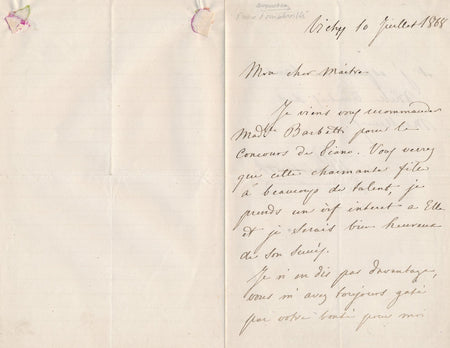 Vichy 10 Juillet 1868
Mon cher Maître
Je viens vous recommander
Madlle Barbetti pour le
Concours de Piano. Vous verrez
que cette charmante fille
à beaucoup de talent, je
prends un vif interet a Elle
et je serais bien heureuse
de son succès.
Je n'en dis pas davantage,
vous m'avez toujours gaté
par votre bonté pour moi